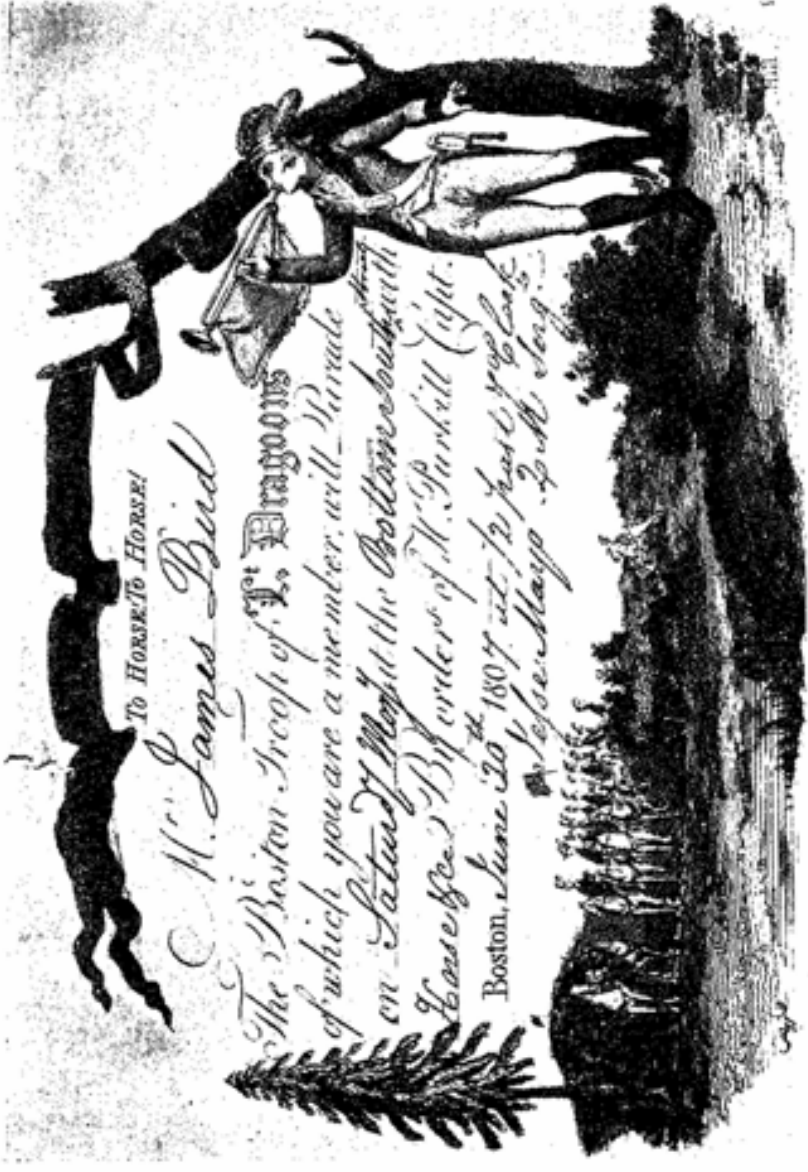 To Horse! To Horse!
Mr. James Bird
The Boston Troop of Lt. Dragoons
of which you are a member, will Parade
on Saturdy Mor at the Bottom South with
Horse &c. By order of W. Purkill Capt.
Boston, June 20th 1807 at ½ past 7 Clock
Jesse May Q M Serg